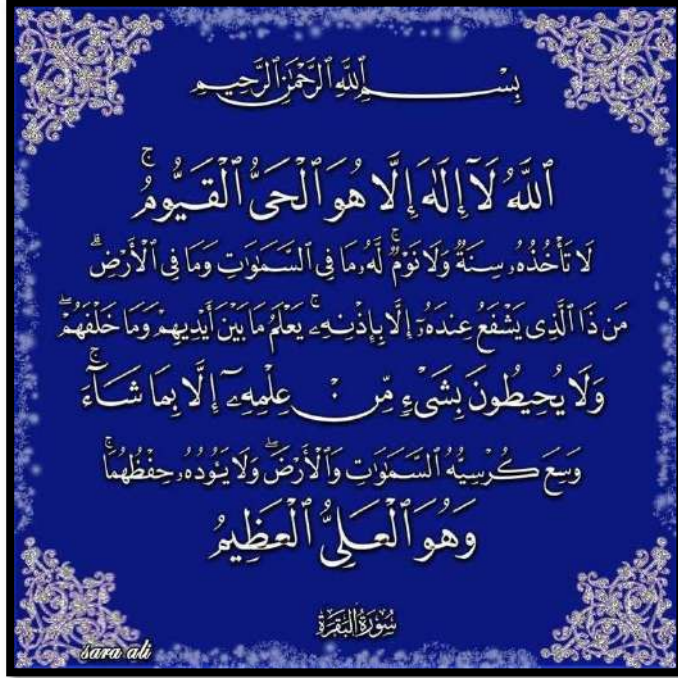 بِسْمِ ٱللَّهِ ٱلرَّحْمَٰنِ ٱلرَّحِيمِ
ٱللَّهُ لَآ إِلَٰهَ إِلَّا هُوَ ٱلْحَىُّ ٱلْقَيُّومُ ۚ
لَا تَأْخُذُهُۥ سِنَةٌ وَلَا نَوْمٌ ۚ لَّهُۥ مَا فِى ٱلسَّمَٰوَٰتِ وَمَا فِى ٱلْأَرْضِ ۗ
مَن ذَا ٱلَّذِى يَشْفَعُ عِندَهُۥٓ إِلَّا بِإِذْنِهِۦ ۚ يَعْلَمُ مَا بَيْنَ أَيْدِيهِمْ وَمَا خَلْفَهُمْ ۖ
وَلَا يُحِيطُونَ بِشَىْءٍ مِّنْ عِلْمِهِۦٓ إِلَّا بِمَا شَآءَ ۚ
وَسِعَ كُرْسِيُّهُ ٱلسَّمَٰوَٰتِ وَٱلْأَرْضَ ۖ وَلَا يَـُٔودُهُۥ حِفْظُهُمَا ۚ
وَهُوَ ٱلْعَلِىُّ ٱلْعَظِيمُ
سُورَةُ الْبَقَرَةِ
sara ali